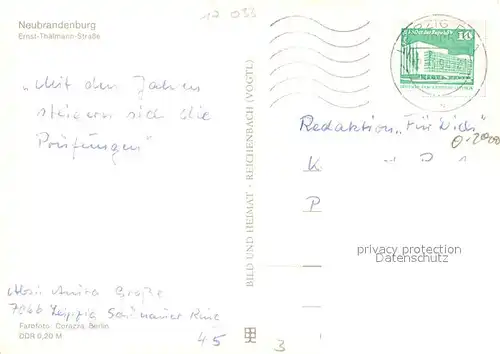 Neubrandenburg
Ernst-Thälmann-Straße
12 033
LEIPZIG
10
„Mit den Jahren
steigern sich die
Prüfungen"
BILD UND HEIMAT · REICHENBACH (VOGTL)
Redaktion „Für Dich"
K
P
privacy protection
Datenschutz
Anita Große
7066 Leipzig
45
3
Farbfoto: Corazza, Berlin
DDR 0,20 M